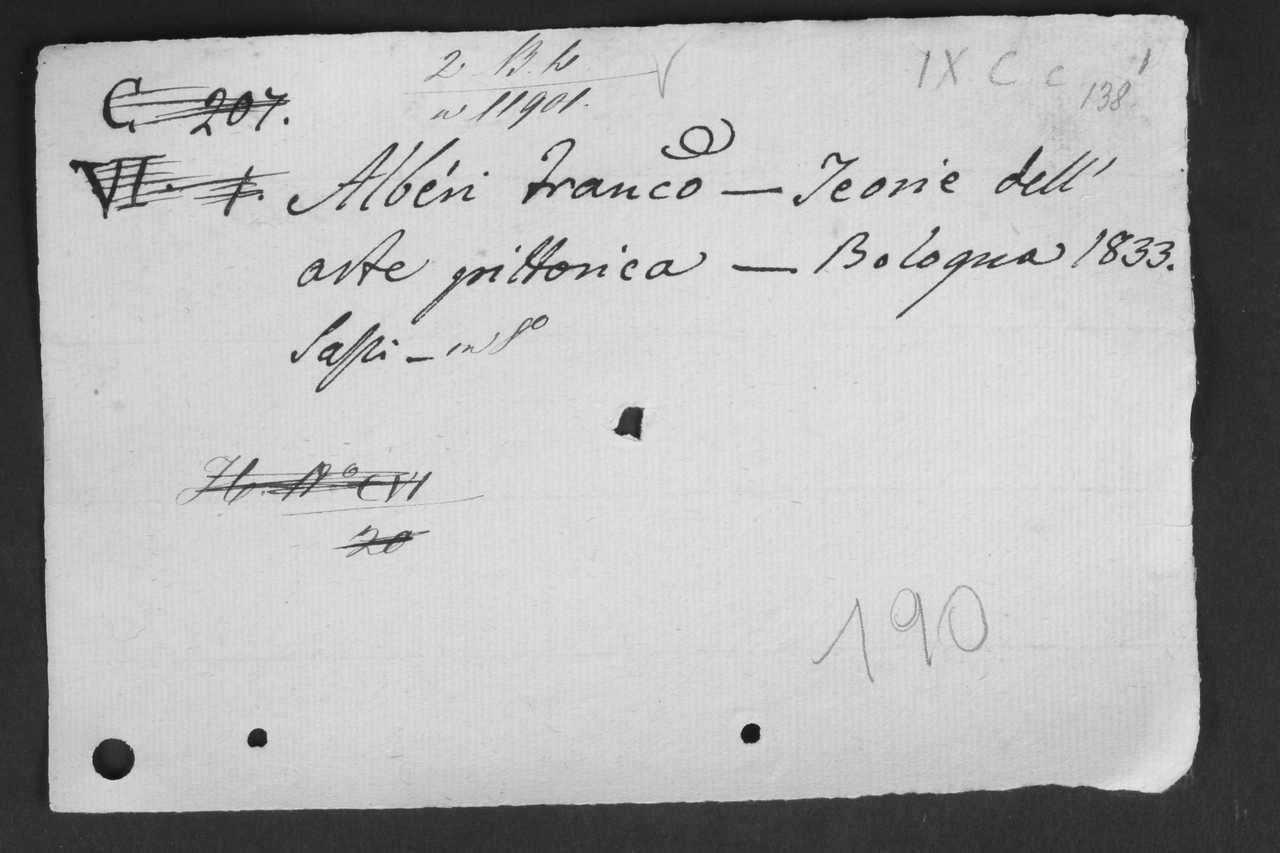 IX C c 138 1
C. 207.
VII. 1.
Albéri Franco — Teorie dell'
arte pittorica — Bologna 1833.
Sassi — in 8º
Nº CVI
20
190